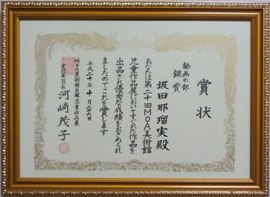 賞状
絵画の部
銀賞
坂田那瑠実殿
あなたは第二十回MOA美術館
児童作品展においてすぐれた作品を
出品され優秀な成績をおさめられ
ましたのでこれを賞します
平成二十年十月二十六日
河崎茂子